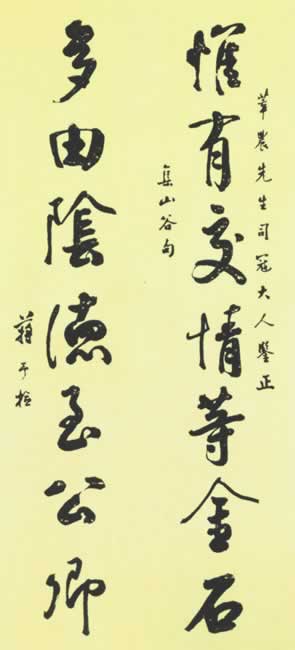 華農先生司寇大人鑒正
惟有交情等金石
集山谷句
多由陰德至公卿
蔣予檢